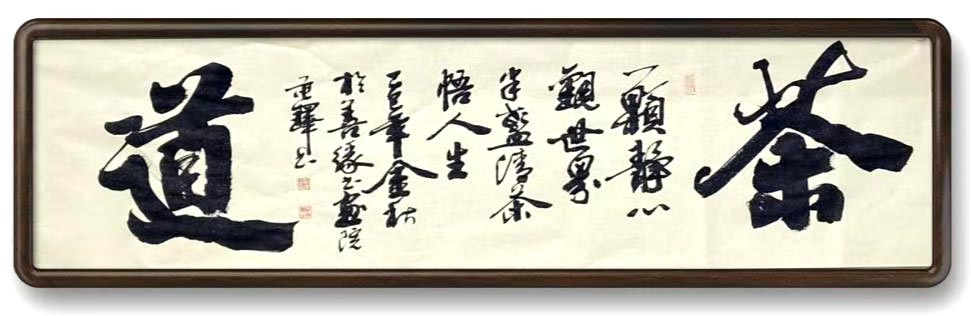 茶
一顆靜心
觀世界
半盞清茶
悟人生
己巳年金秋
於善緣书画院
范鐸书
道